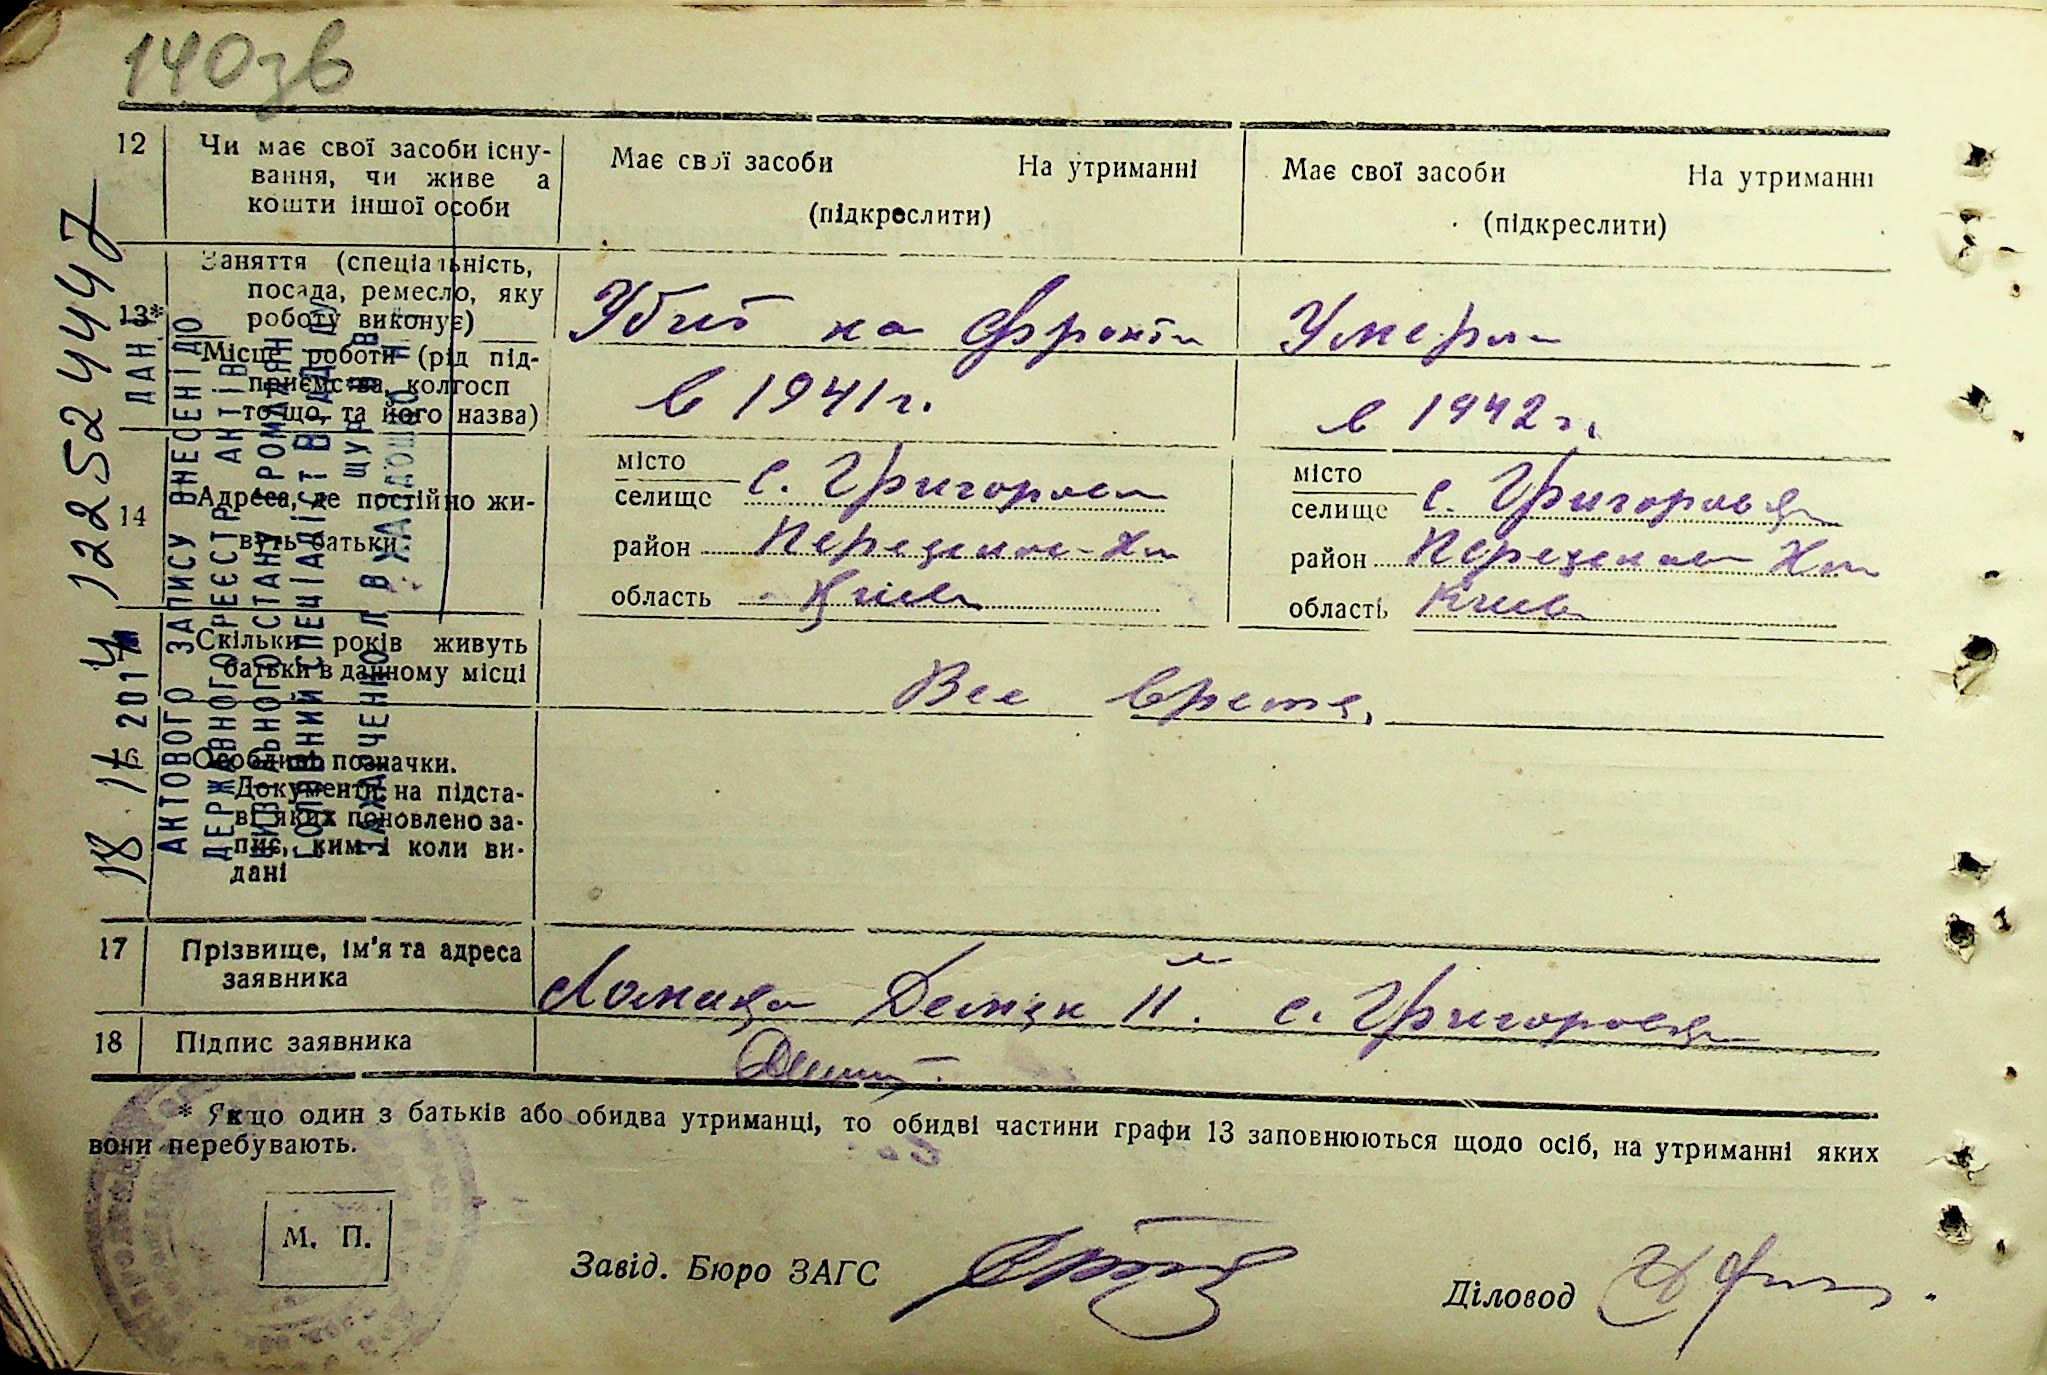 140зв
12 Чи має свої засоби існу-
вання, чи живе а
кошти іншої особи
Має свої засоби На утриманні
(підкреслити)
Має свої засоби На утриманні
(підкреслити)
13* Заняття (спеціальність,
посада, ремесло, яку
роботу виконує)
Місце роботи (рід під-
приємства, колгосп
тощо, та його назва)
Убит на фронті
в 1941 г.
Умерла
в 1942 г.
14 Адреса, де постійно жи-
вуть батьки
місто
селище с. Григоровка
район
область Киев
місто
селище с. Григоровка
район
область Киев
Скільки років живуть
батьки в данному місці
Все время.
16 Особливі позначки.
Документи, на підста-
ві яких поновлено за-
пис, ким і коли ви-
дані
17 Прізвище, ім'я та адреса
заявника
Демян II. с. Григоровка
18 Підпис заявника
* Якщо один з батьків або обидва утриманці, то обидві частини графи 13 заповнюються щодо осіб, на утриманні яких
вони перебувають.
М. П.
Завід. Бюро ЗАГС
Діловод
12252444
18 11 2014
ДАНІ
АКТОВОГО ЗАПИСУ ВНЕСЕНІ ДО
ДЕРЖАВНОГО РЕЄСТРУ АКТІВ
ЦИВІЛЬНОГО СТАНУ ГРОМАДЯН
ГОЛОВНИЙ СПЕЦІАЛІСТ